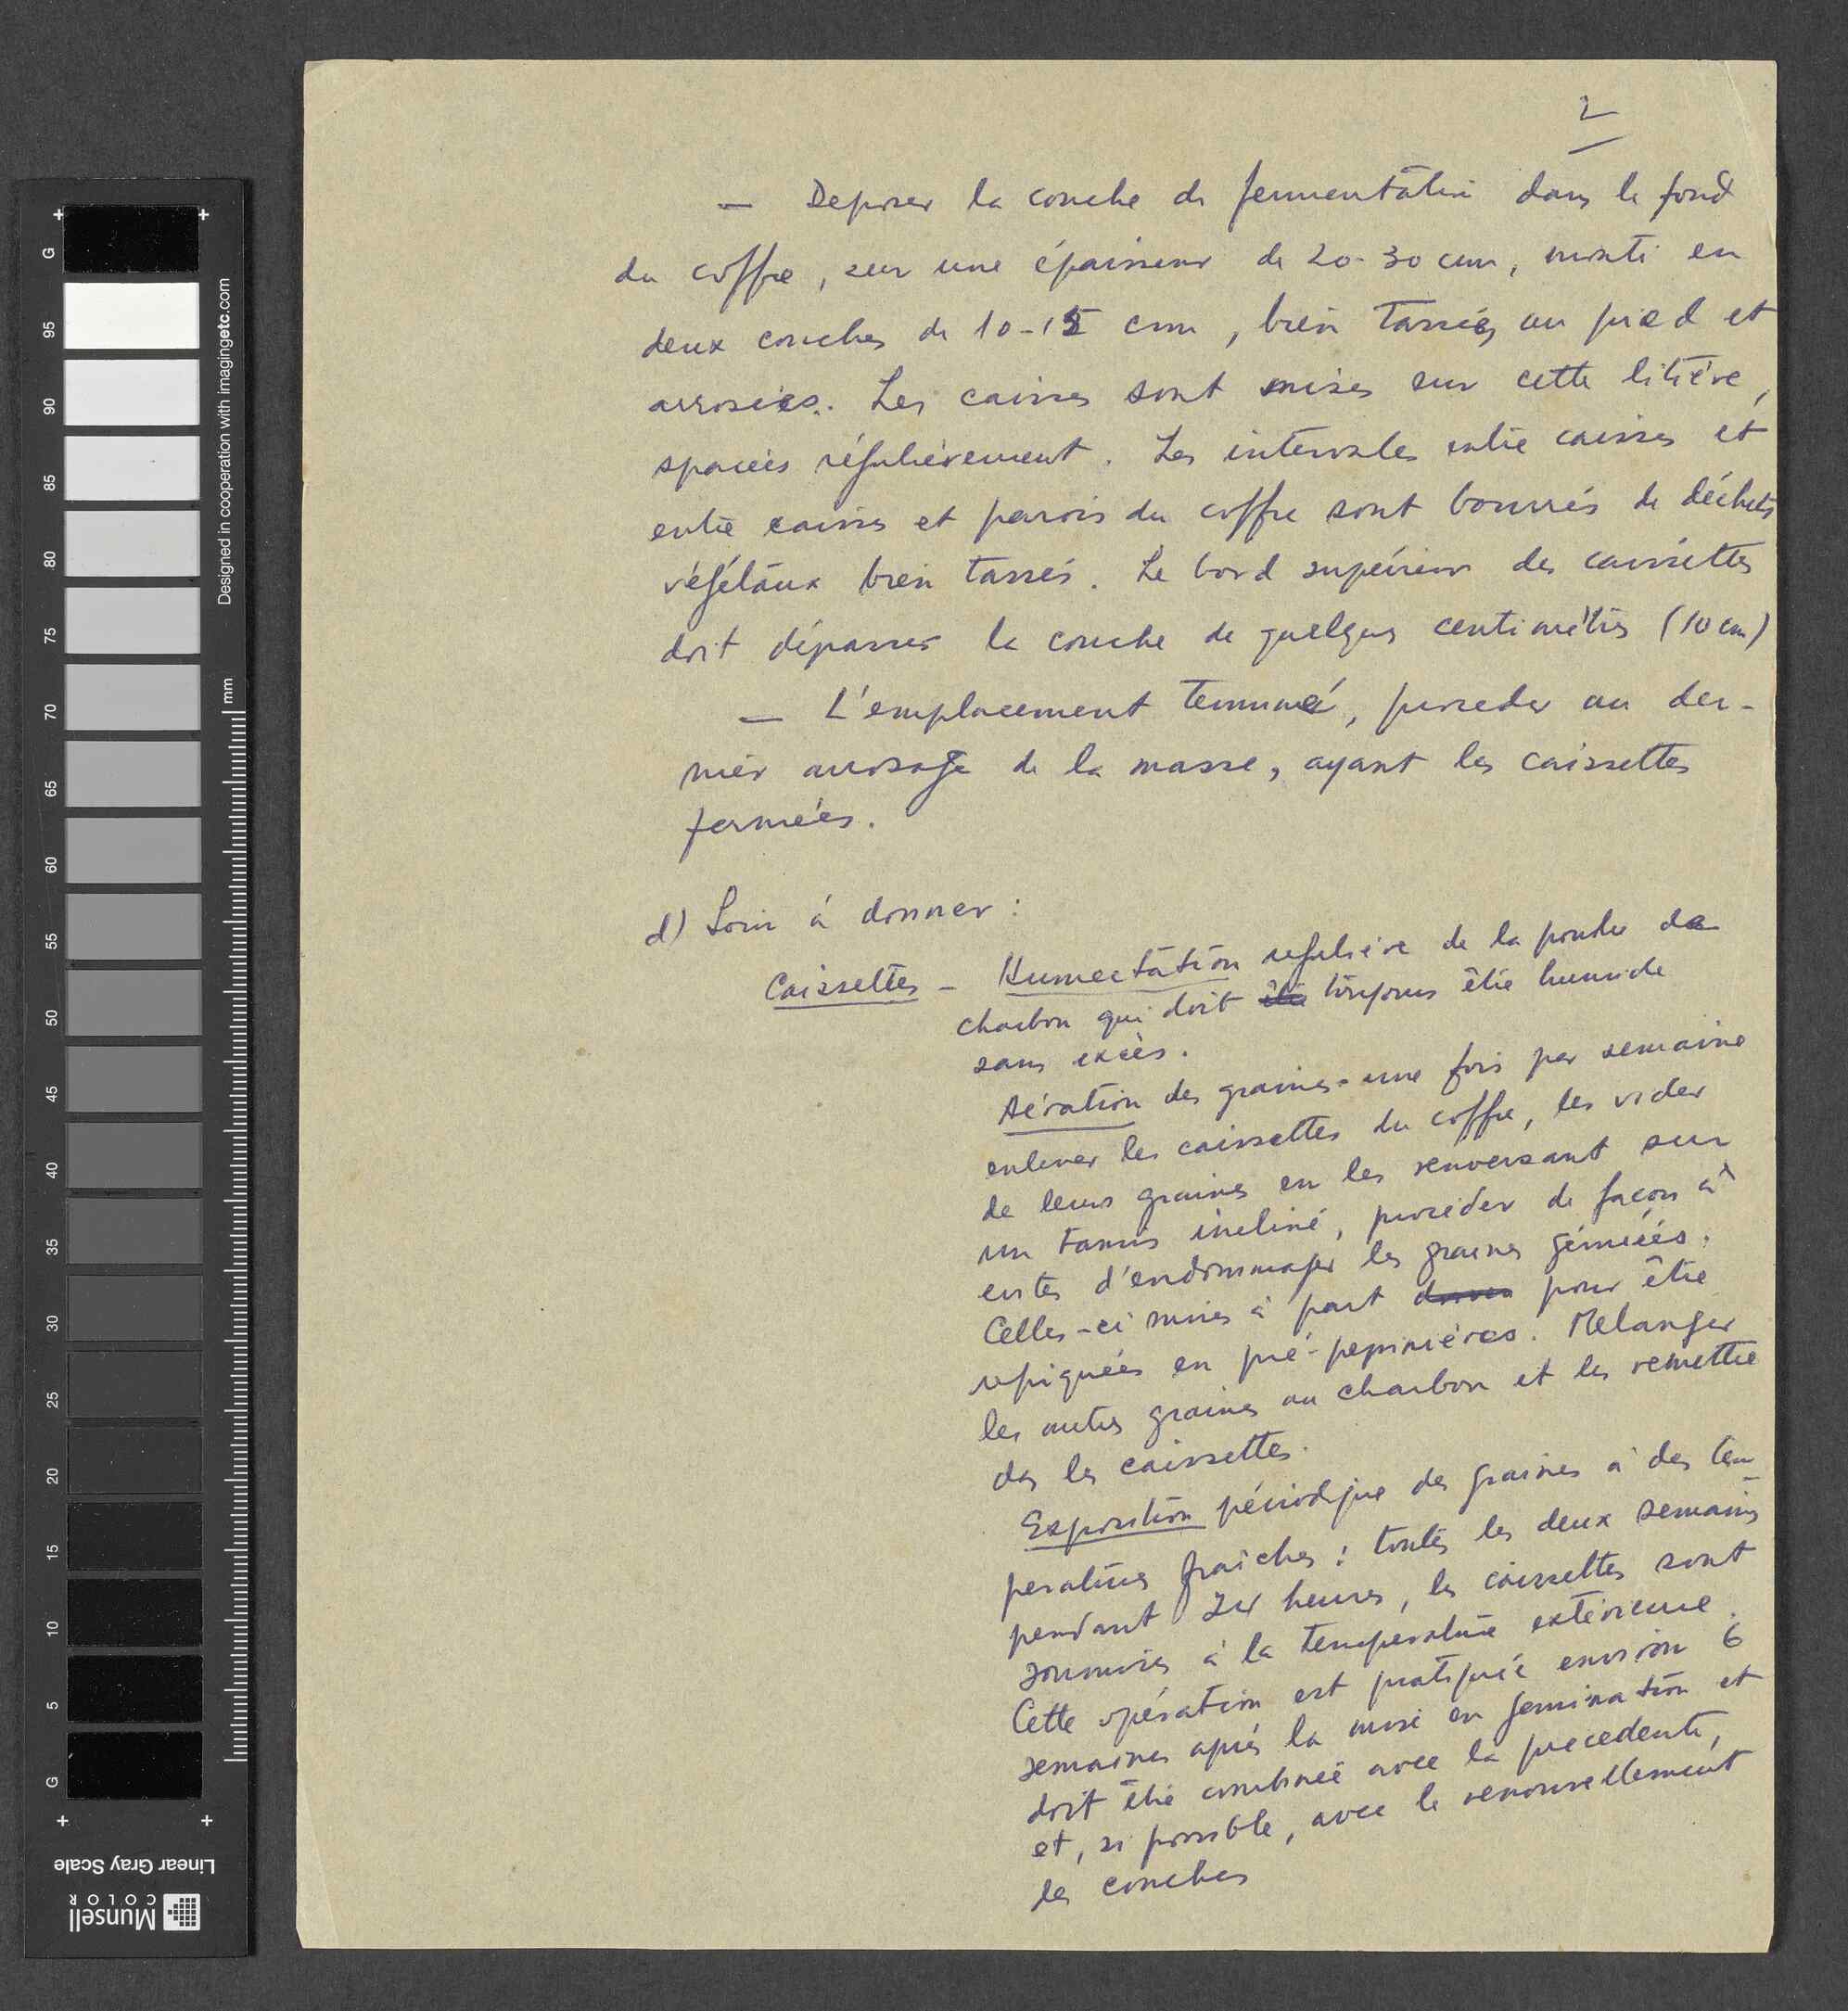 2
— Deposer la couche de fermentation dans le fond
du coffre, sur une épaisseur de 20-30 cm, monté en
deux couches de 10-15 cm, bien tassées au pied et
arrosées. Les caisses sont mises sur cette litière,
spacées régulièrement. Les intervales entre caisses et
entre caisses et parois du coffre sont bourrés de déchets
végétaux bien tassés. Le bord supérieur des caissettes
doit dépasser la couche de quelques centimètres (10 cm)
— L'emplacement terminé, proceder au der-
nier arrosage de la masse, ayant les caissettes
fermées.
d) Soin à donner :
Caissettes - Humectation regulière de la poudre de
charbon qui doit être toujours être humide
sans excès.
Aération des graines - une fois par semaine
enlever les caissettes du coffre, les vider
de leurs graines en les renversant sur
un tamis incliné, procéder de façon à
evter d'endommager les graines germées.
Celles-ci mises à part pour être
repiquées en pré-pepinières. Melanger
les autres graines au charbon et les remettre
ds les caissettes.
Exposition périodique des graines à des tem-
peratures fraîches : toutes les deux semaines
pendant 24 heures, les caissettes sont
soumises à la temperature extérieure.
Cette opération est pratiquée environ 6
semaines après la mise en germination et
doit être combinée avec la precedente,
et, si possible, avec le renouvellement
des couches
G
95
90
85
80
75
70
65
60
55
50
45
40
35
30
25
20
15
10
5
G
mm
Designed in cooperation with imagingetc.com
Linear Gray Scale
Munsell
COLOR